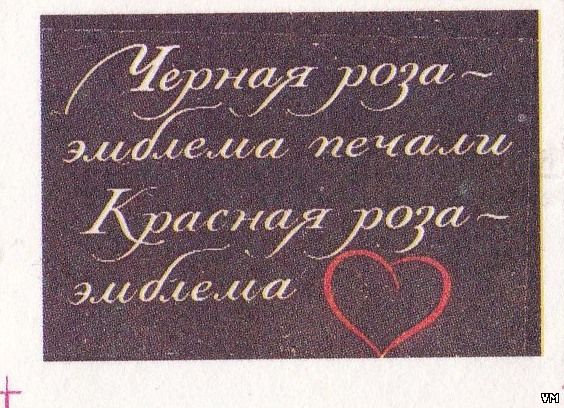 Черная роза ~
эмблема печали
Красная роза ~
эмблема
VM